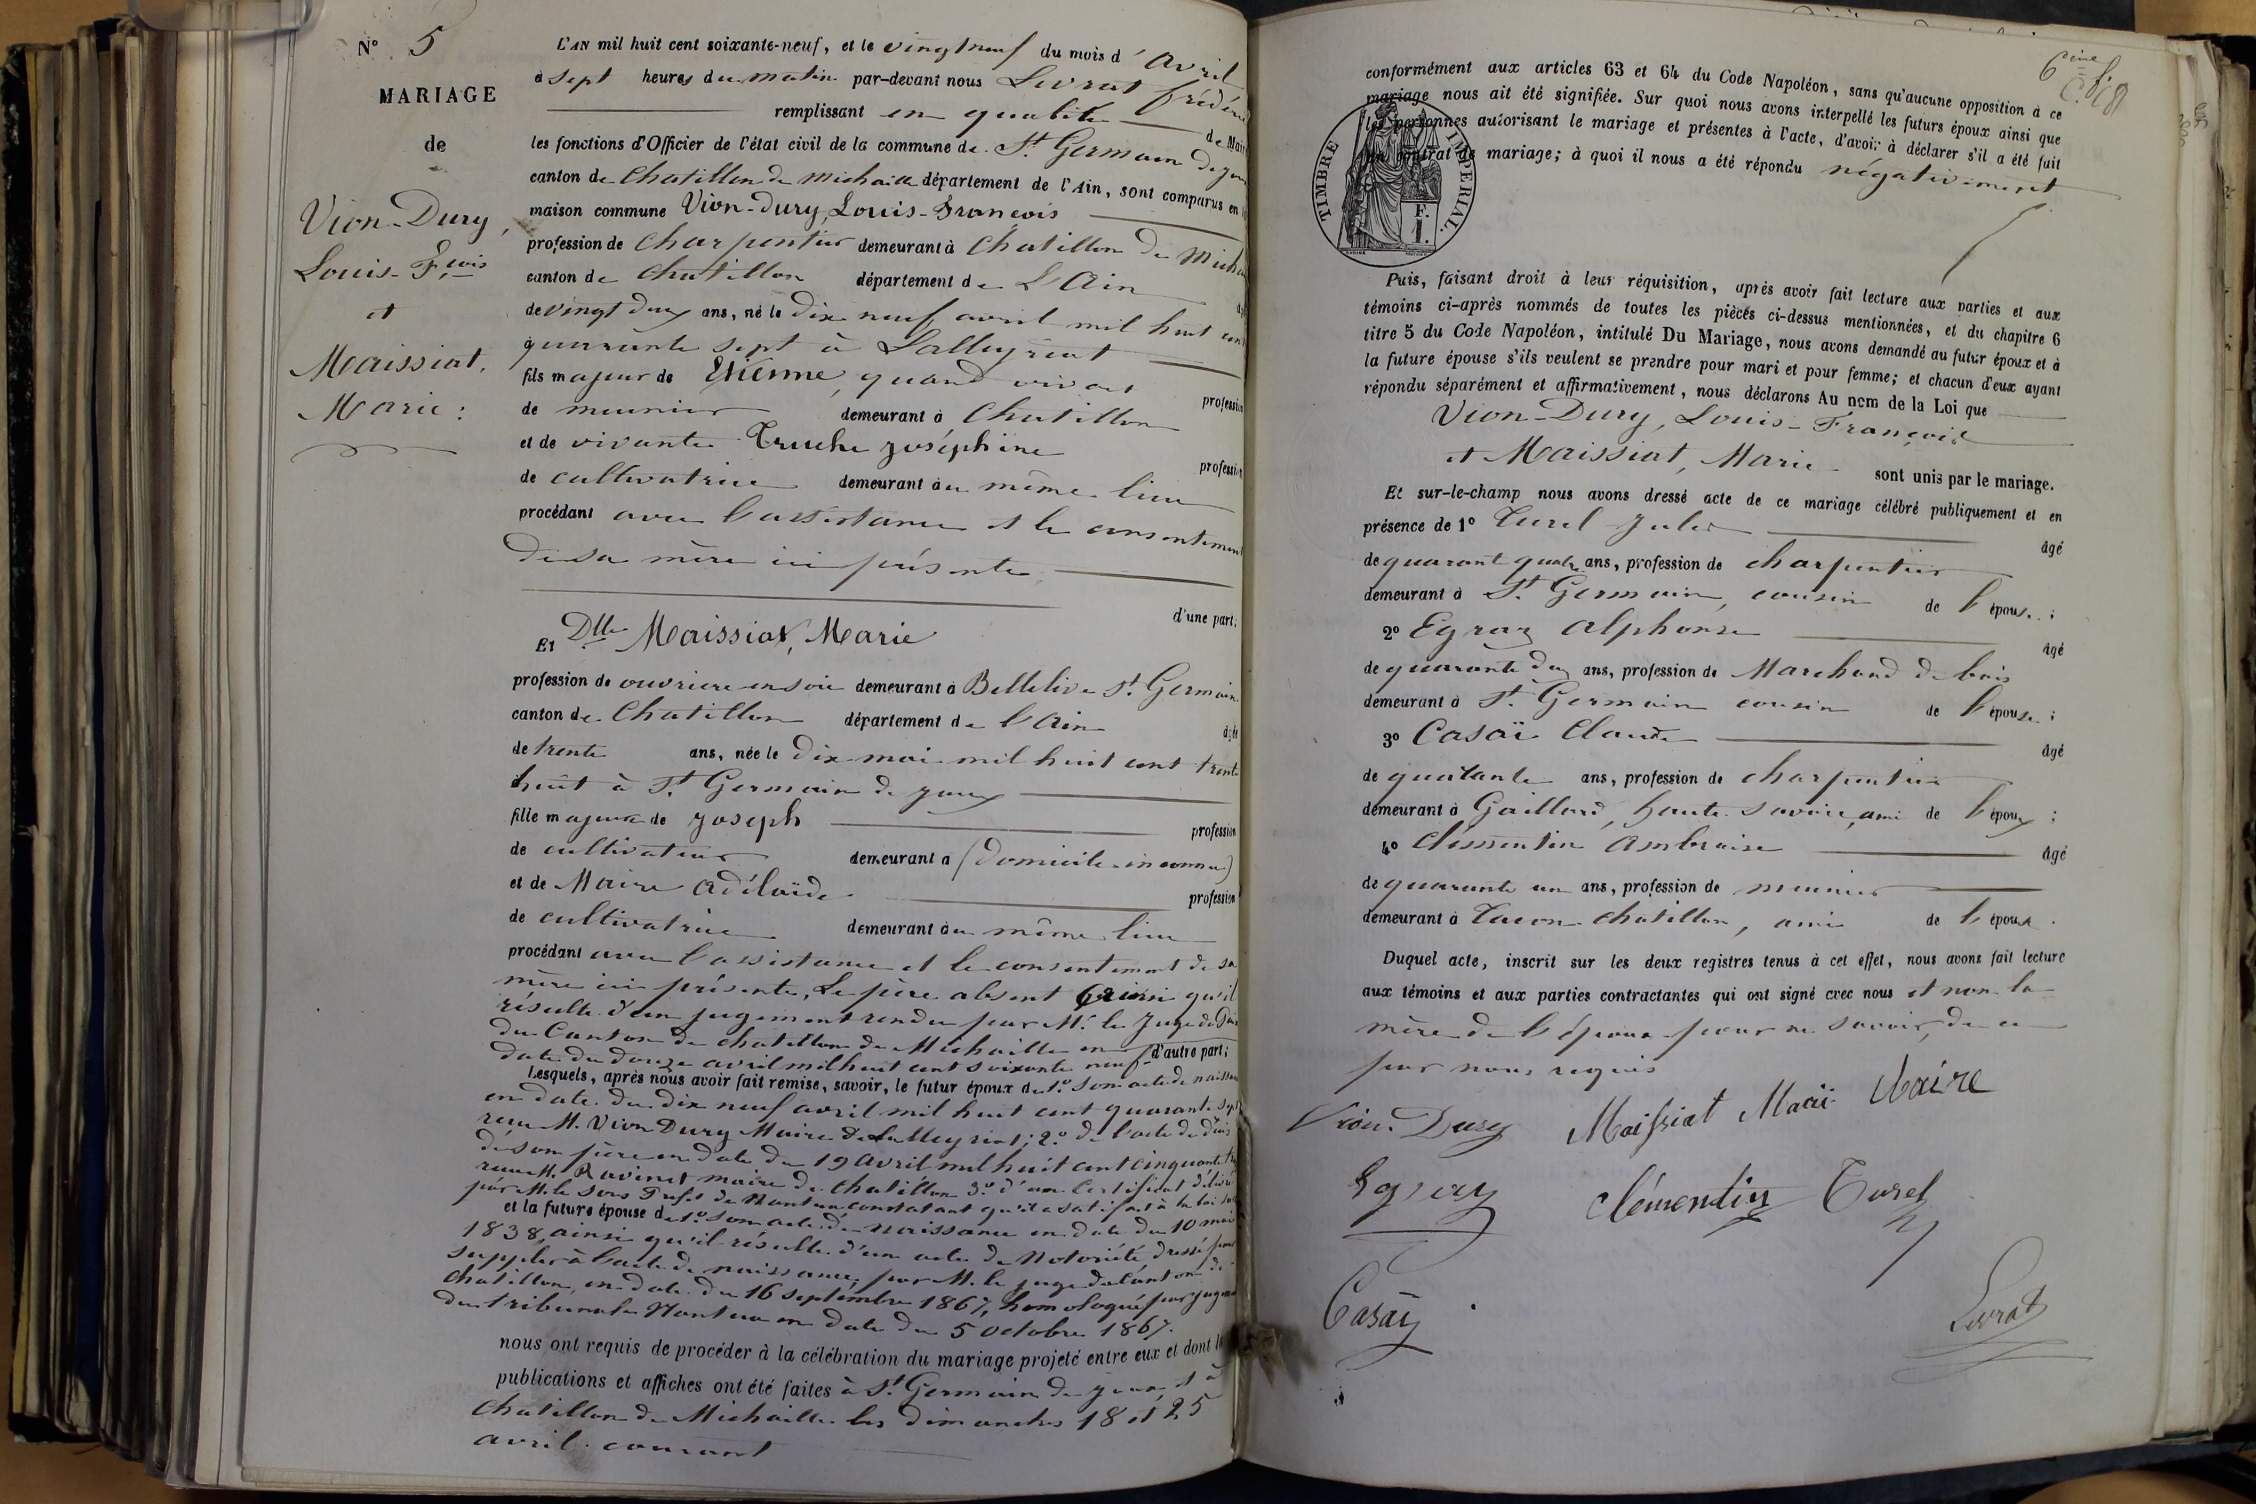 N° 5
MARIAGE
de
Vion-Dury,
Louis-Fçois
et
Maissiat,
Marie:
L'AN mil huit cent soixante-neuf, et le vingt neuf du mois d'Avril
à sept heures du matin par-devant nous Livrat frédéric
remplissant en qualité de Maire
les fonctions d'Officier de l'état civil de la commune de St. Germain de joux
canton de Chatillon de Michaille département de l'Ain, sont comparus en la
maison commune Vion-Dury, Louis-François
profession de charpentier demeurant à Chatillon de Michaille
canton de Chatillon département de L'Ain âgé
de vingt deux ans, né le Dix neuf avril mil huit cent
quarante sept à Lalleyriat
fils majeur de Etienne, quand vivait profession
de meunier demeurant à Chatillon
et de vivante Truche joséphine profession
de cultivatrice demeurant au même lieu
procédant avec l'assistance et le consentement
de sa mère ici présente,
d'une part;
Et Dlle Maissiat, Marie
profession de ouvriere en soie demeurant à Bellelive St. Germain
canton de Chatillon département de l'Ain âgée
de trente ans, née le Dix mai mil huit cent trente
huit à St. Germain de joux
fille majeure de joseph profession
de cultivateur demeurant à (domicile inconnu)
et de Maire Adélaïde profession
de cultivatrice demeurant au même lieu
procédant avec l'assistance et le consentement de sa
mère ici présente, Le père absent ainsi qu'il
résulte d'un jugement rendu par Mr. le Juge de Paix
du Canton de Chatillon de Michaille en
date du douze avril mil huit cent soixante neuf d'autre part;
Lesquels, après nous avoir fait remise, savoir, le futur époux de 1° son acte de naissance
en date du dix neuf avril mil huit cent quarante sept
reçu M. Vion Dury Maire de Lalleyriat; 2° de l'acte de décès
de son père en date du 19 avril mil huit cent cinquante
reçu M. Ravinet maire de Chatillon 3° d'un certificat délivré
par M. le Sous Préfet de Nantua constatant qu'il a satisfait à la loi sur
et la future épouse de 1° son acte de naissance en date du 10 mai
1838, ainsi qu'il résulte d'un acte de Notoriété, dressé pour
suppléer à l'acte de naissance, par M. le juge du canton de
Chatillon, en date du 16 septembre 1867, homologué par jugement
du tribunal de Nantua en date du 5 octobre 1867.
nous ont requis de procéder à la célébration du mariage projeté entre eux et dont les
publications et affiches ont été faites à St. Germain de joux et à
Chatillon de Michaille les dimanches 18 et 25
avril courant
conformément aux articles 63 et 64 du Code Napoléon, sans qu'aucune opposition à ce
mariage nous ait été signifiée. Sur quoi nous avons interpellé les futurs époux ainsi que
les personnes autorisant le mariage et présentes à l'acte, d'avoir à déclarer s'il a été fait
un contrat de mariage; à quoi il nous a été répondu négativement
TIMBRE IMPERIAL.
F.
1.
Puis, faisant droit à leur réquisition, après avoir fait lecture aux parties et aux
témoins ci-après nommés de toutes les pièces ci-dessus mentionnées, et du chapitre 6
titre 5 du Code Napoléon, intitulé Du Mariage, nous avons demandé au futur époux et à
la future épouse s'ils veulent se prendre pour mari et pour femme; et chacun d'eux ayant
répondu séparément et affirmativement, nous déclarons Au nom de la Loi que
Vion-Dury, Louis-François
et Maissiat, Marie sont unis par le mariage.
Et sur-le-champ nous avons dressé acte de ce mariage célébré publiquement et en
présence de 1° Turel Jules âgé
de quarant quatre ans, profession de charpentier
demeurant à St. Germain, cousin de l'épouse;
2° Egraz Alphonse âgé
de quarante deux ans, profession de Marchand de bois
demeurant à St. Germain cousin de l'épouse;
3° Casaï Claude âgé
de quarante ans, profession de charpentier
demeurant à Gaillard, haute Savoie, ami de l'époux;
4° Clémentin Ambroise âgé
de quarante un ans, profession de meunier
demeurant à Tacon Chatillon, ami de l'époux.
Duquel acte, inscrit sur les deux registres tenus à cet effet, nous avons fait lecture
aux témoins et aux parties contractantes qui ont signé avec nous et non la
mère de l'époux pour ne savoir, de ce
par nous requis
Vion-Dury Maissiat Marie Maire
Egraz Clémentin Turel
Casaÿ Livrat